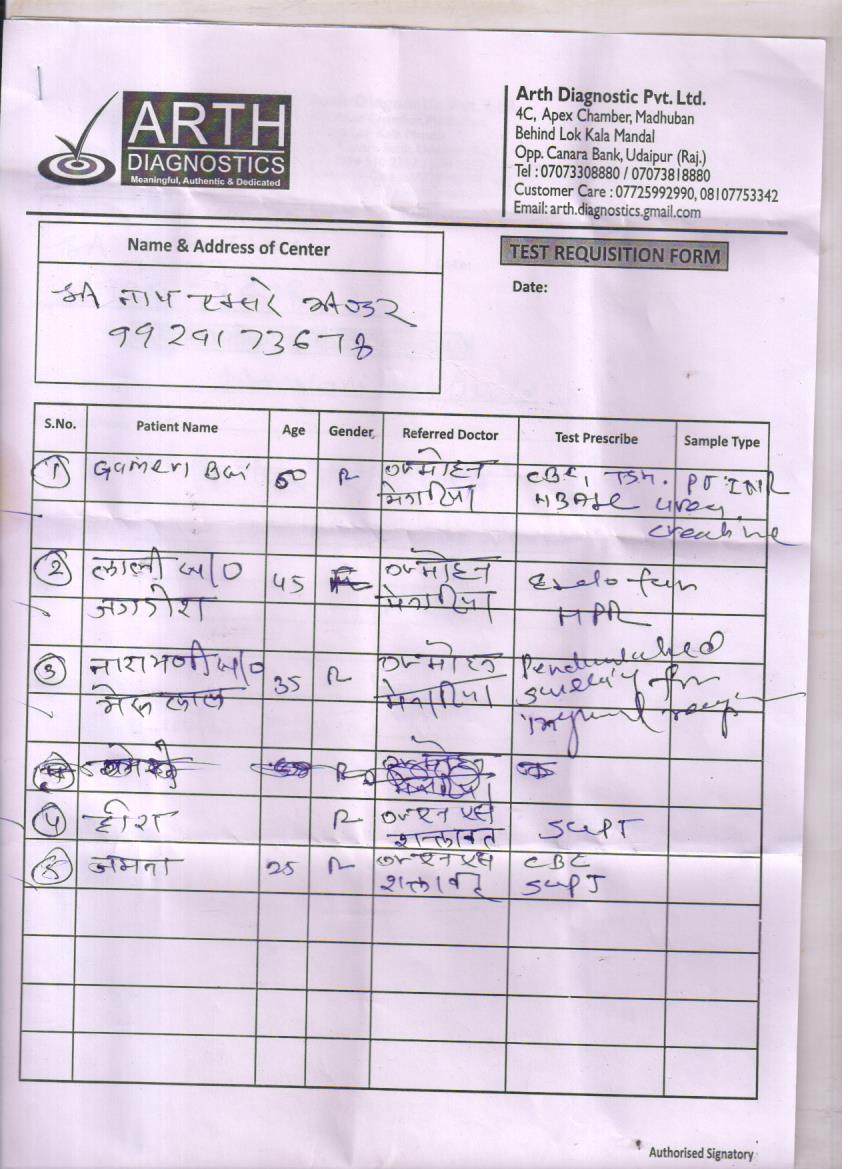 ARTH
DIAGNOSTICS
Meaningful, Authentic & Dedicated
Arth Diagnostic Pvt. Ltd.
4C, Apex Chamber, Madhuban
Behind Lok Kala Mandal
Opp. Canara Bank, Udaipur (Raj.)
Tel : 07073308880 / 07073818880
Customer Care : 07725992990, 08107753342
Email: arth.diagnostics.gmail.com
Name & Address of Center
TEST REQUISITION FORM
Date:
9929173678
S.No. Patient Name Age Gender Referred Doctor Test Prescribe Sample Type
1 Gameri Bai 60 डॉ मोहन CBC, TSH. PT INR
HBA1c urea
creatine
2 लाली w/o 45 डॉ मोहन
जगदीश HPR
3 नारायणी w/o 35 डॉ मोहन
लाल for
4 हीरा डॉ एन एस SGPT
शक्तावत
5 जमना 25 डॉ एन एस CBC
शक्तावत SGPT
Authorised Signatory